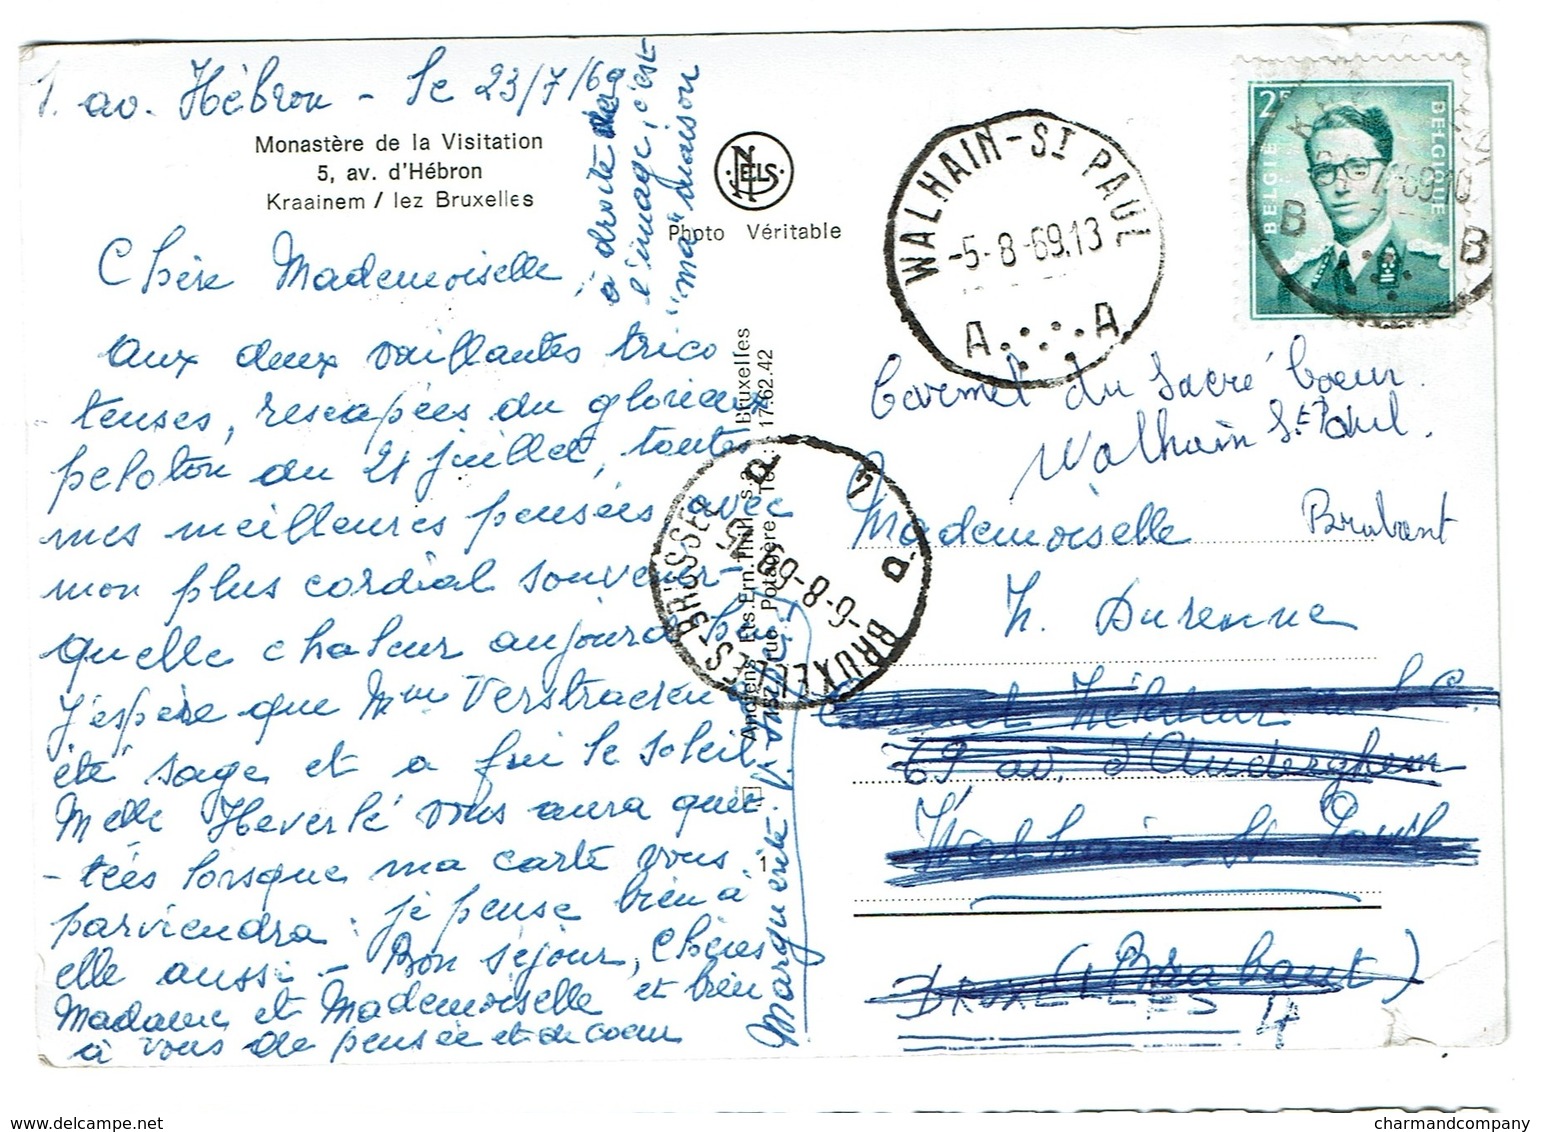 1. av. Hébron - le 23/7/69
Monastère de la Visitation
5, av. d'Hébron
Kraainem / lez Bruxelles
à droite de
l'image, c'est
"ma" maison
NELS
Photo Véritable
Chère Mademoiselle,
aux deux vaillantes trico
teuses, rescapées du glorieux
peloton du 21 juillet, toutes
mes meilleures pensées avec
mon plus cordial souvenir -
quelle chaleur aujourd'hui
J'espère que Mme Verstraeten
été sage et a fui le soleil
Melle Heverlé vous aura quit
-tées lorsque ma carte vous
parviendra : je pense bien à
elle aussi - Bon séjour, Chères
Madame et Mademoiselle et bien
à vous de pensée et de coeur
Marguerite V.
Anciens Ets. Ern. Thill, s.a. Bruxelles
rue Potagère Tél.: 17.62.42
1
WALHAIN-ST PAUL
-5-8-69.13
A A
BRUXELLES-BRUSSEL
-6-8-69
2F
BELGIE BELGIQUE
B B
Carmel du Sacré Coeur.
Walhain St Paul.
Brabant
Mademoiselle
H. Durenne
Carmel
69 av. d'Auderghem
Walhain St Paul
(Brabant)
BRUXELLES 4
www.delcampe.net
charmandcompany